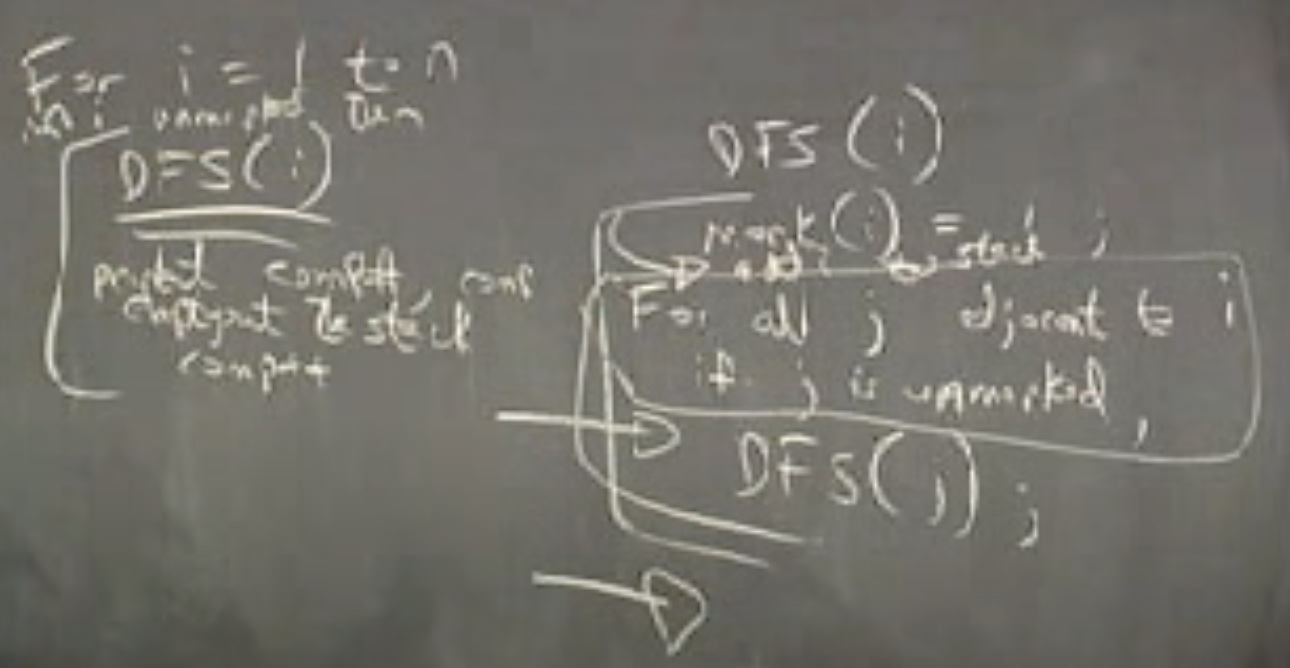 For i = 1 to n
if i unmarked then
DFS(i)
print
empty out the stack
DFS(i)
mark(i) = 1;
add i to stack
For all j adjacent to i
if j is unmarked,
DFS(j);